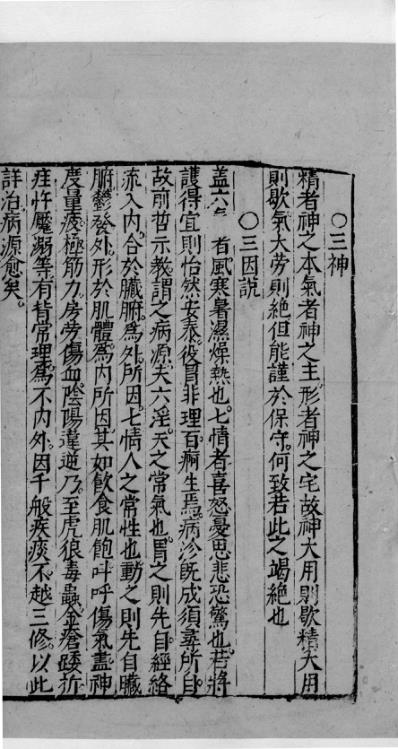 ○三神
精者神之本氣者神之主形者神之宅故神大用則歇精大用
則歇氣大劳則絶但能謹於保守何致若此之竭絶也
○三因說
盖六 者風寒暑濕燥熱也七情者喜怒憂思悲恐驚也若將
護得宜則怡然安泰役冒非理百痾生焉病沴既成須尋所自
故前哲示教謂之病源夫六淫天之常氣也冒之則先自經絡
流入内合於臟腑為外所因七情人之常性也動之則先自臟
腑鬱發外形於肌體為内所因其如飲食肌飽呌呼傷氣盡神
度量疲極筋力房劳傷血陰陽違逆乃至虎狼毒蟲金瘡踒折
疰忤魘溺等有背常理為不内外因千般疾痰不越三修以此
詳治病源愈矣